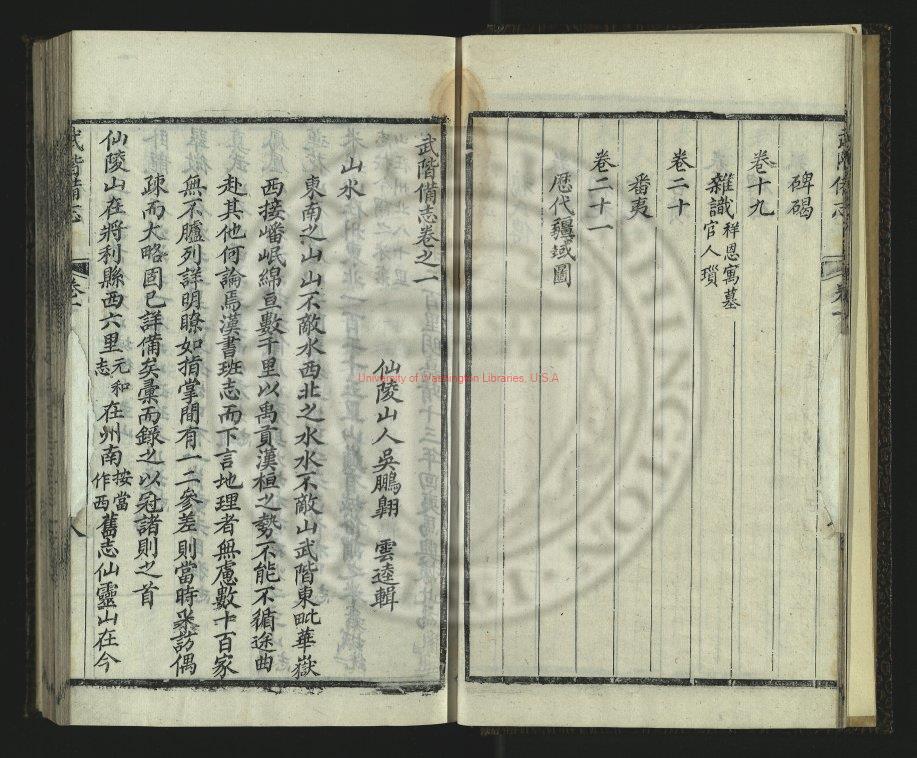 碑碣
卷十九
雜識 祥恩寓墓 官人瑣
卷二十
番夷
卷二十一
歷代疆域圖
武階備志卷之一
仙陵山人吳鵬翱 雲逵輯
山水
東南之山山不敵水西北之水水不敵山武階東毗華嶽
西接嶓岷綿亘數千里以禹貢漢桓之勢不能不循途曲
赴其他何論焉漢書班志而下言地理者無慮數十百家
無不臚列詳明瞭如指掌間有一二參差則當時采訪偶
疎而大略固已詳備矣彙而錄之以冠諸則之首
仙陵山在將利縣西六里 元和志 在州南 按當作西 舊志仙靈山在今
武階備志 卷一 八
University of Washington Libraries, U.S.A